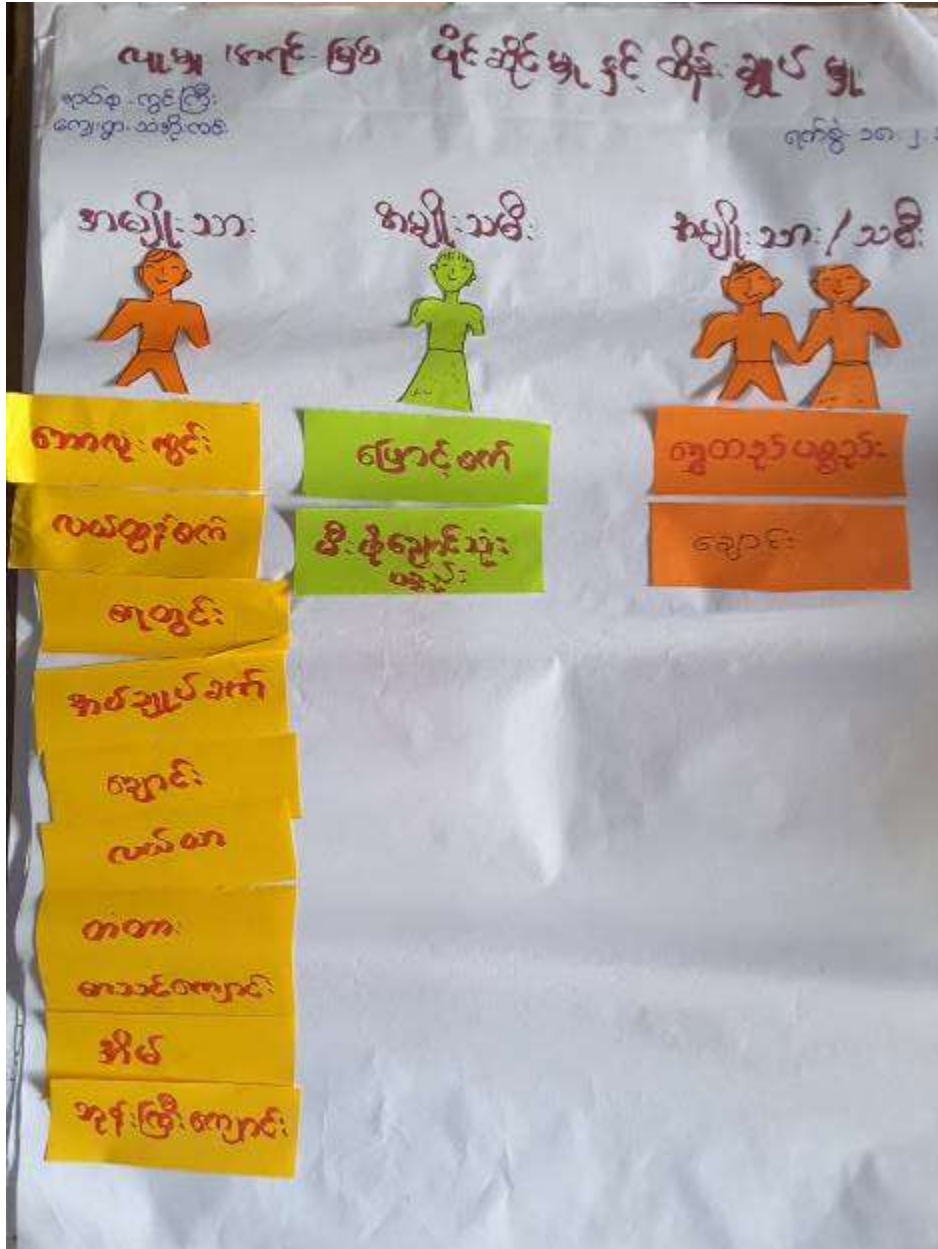 လူမှု အရင်းမြစ် ပိုင်ဆိုင်မှု နှင့် ထိန်းချုပ် မှု
ကွင်းကြီး
ရက်စွဲ ၁၈.၂.
အမျိုးသား
အမျိုးသမီး
အမျိုးသား/သမီး
ဘောလုံးကွင်း
လယ်ထွန်စက်
ရေတွင်း
အပ်ချုပ်စက်
ချောင်း
လယ်ယာ
တံတား
စာသင်ကျောင်း
အိမ်
ဘုန်းကြီးကျောင်း
ပြောင်းစက်
မီးဖိုချောင်သုံး
ပစ္စည်း
ရွှေထည်ပစ္စည်း
ချောင်း